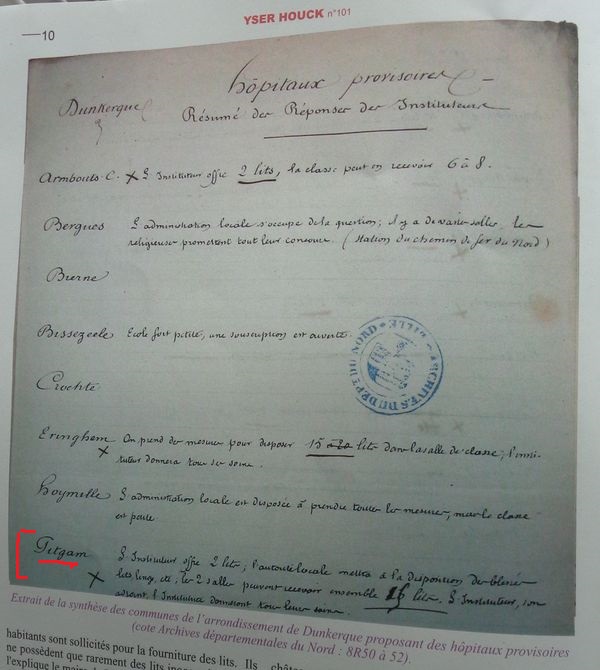 10
YSER HOUCK n°101
hôpitaux provisoires
Dunkerque
Résumé des Réponses des Instituteurs
Armbouts. C. x L'Instituteur offre 2 lits, la classe peut en recevoir 6 à 8.
Bergues L'administration locale s'occupe de la question; il y a de vastes salles, les
religieuses promettent tout leur concours. (Station du chemin de fer du Nord)
Bierne
Bissezeele Ecole fort petite, une souscription est ouverte.
Crochte
ARCHIVES DU DEPT DU NORD LILLE
Eringhem On prend des mesures pour disposer 15 à 20 lits dans la salle de classe; l'insti-
x tuteur donnera tous ses soins.
Hoymille L'administration locale est disposée à prendre toutes les mesures, mais la classe
est petite.
Pitgam L'Instituteur offre 2 lits; l'autorité locale mettra à la disposition des blessés
x lits, linge, etc; les 2 salles peuvent recevoir ensemble 15 lits. L'Instituteur, son
adjoint, l'Institutrice donneront tous leurs soins.
Extrait de la synthèse des communes de l'arrondissement de Dunkerque proposant des hôpitaux provisoires
(cote Archives départementales du Nord : 8R50 à 52).
habitants sont sollicités pour la fourniture des lits. Ils
ne possèdent que rarement des lits
l'explique le maire